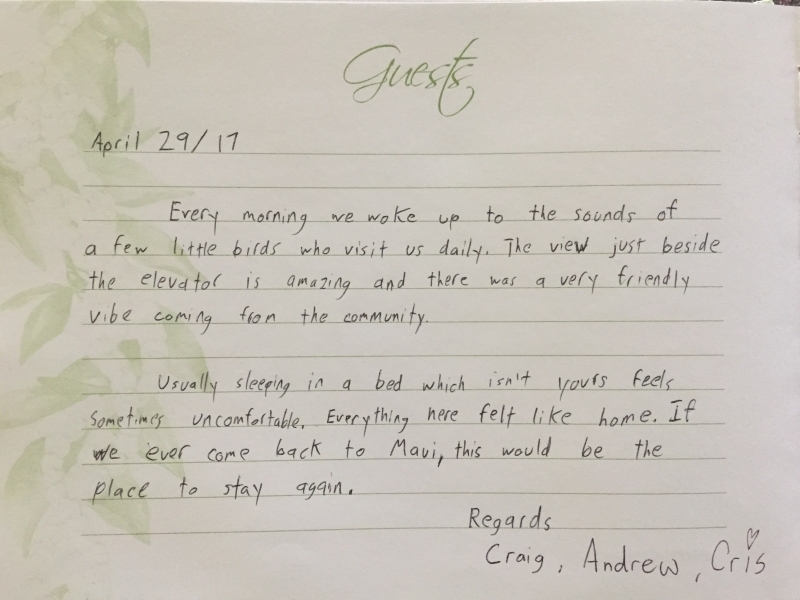 Guests
April 29/17
Every morning we woke up to the sounds of
a few little birds who visit us daily. The view just beside
the elevator is amazing and there was a very friendly
vibe coming from the community.
Usually sleeping in a bed which isn't yours feels
sometimes uncomfortable. Everything here felt like home. If
we ever come back to Maui, this would be the
place to stay again.
Regards
Craig, Andrew, Cris